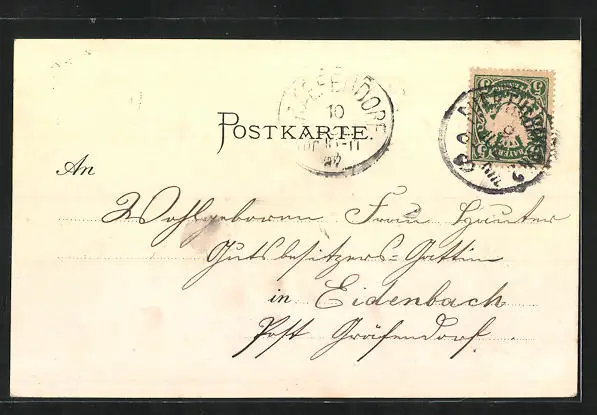 POSTKARTE.
An
Wohlgeboren Frau Hauter
Gutsbesitzers-Gattin
in Eidenbach
Post Gräfendorf.
BAYERN
5
10